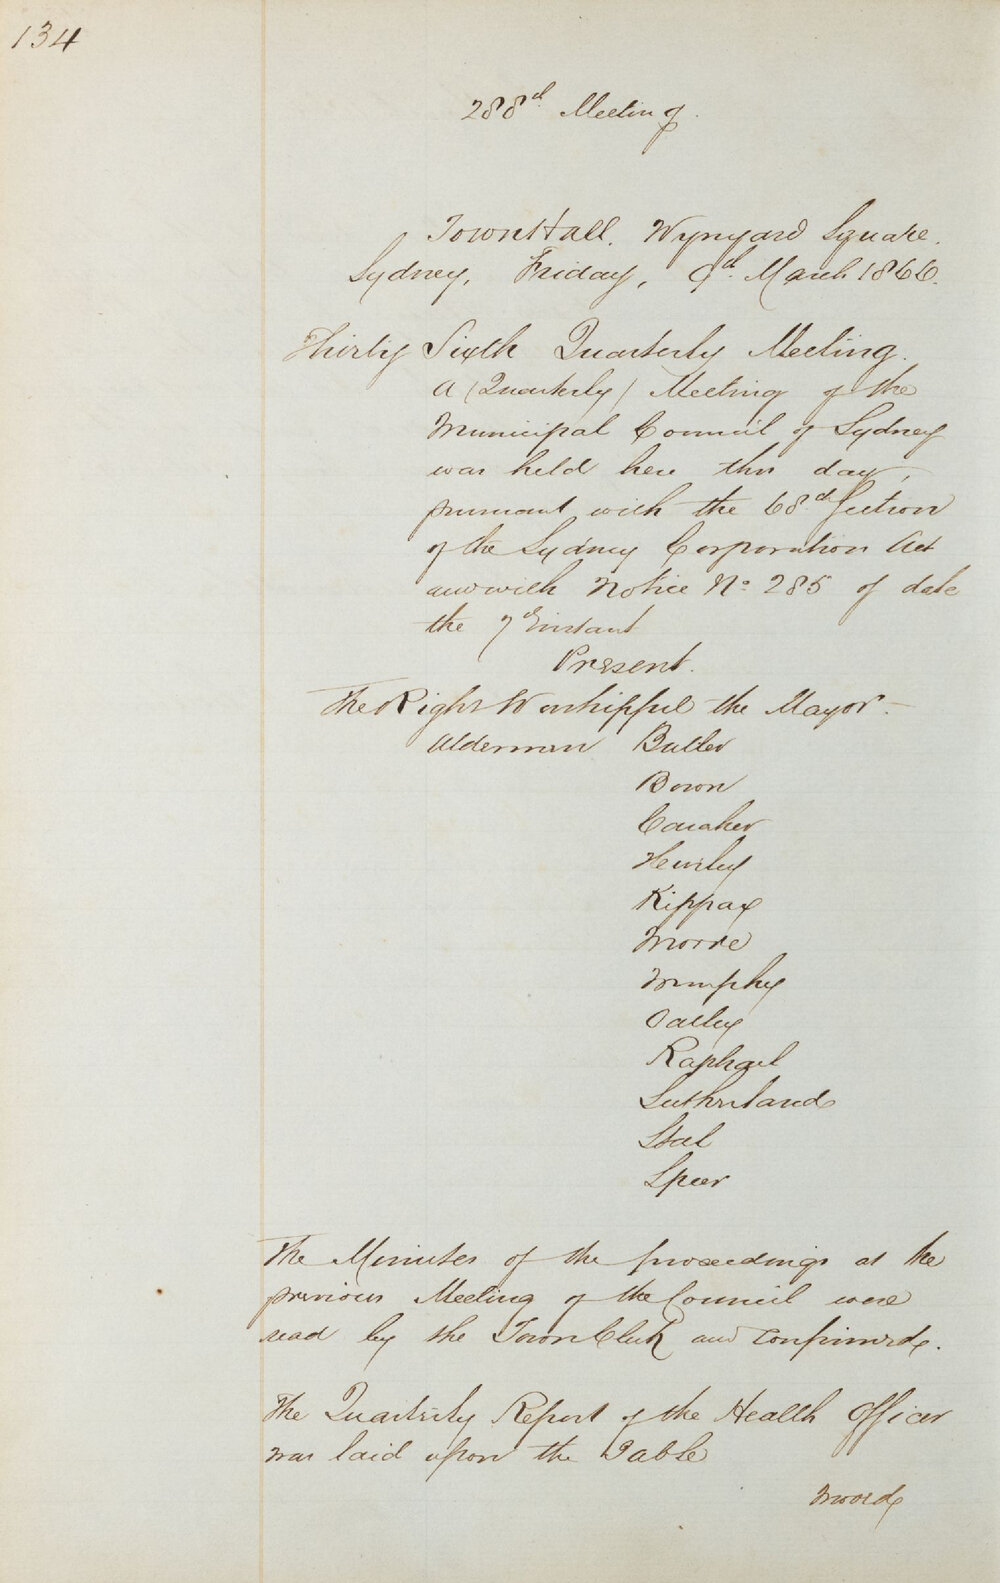 134
288th Meeting.
Town Hall. Wynyard Square.
Sydney, Friday, 9th March 1866.
Thirty Sixth Quarterly Meeting.
A (Quarterly) Meeting of the
Municipal Council of Sydney
was held here this day,
pursuant with the 68th Section
of the Sydney Corporation Act
and with Notice No 285 of date
the 7th Instant
Present.
The Right Worshipful the Mayor -
Alderman Butler
Bown
Caraher
Hurley
Kippax
Moore
Murphy
Oatley
Raphael
Sutherland
Steel
Speer
The Minutes of the proceedings at the
previous Meeting of the Council were
read by the Town Clerk and Confirmed.
The Quarterly Report of the Health Officer
was laid upon the Table
Moved